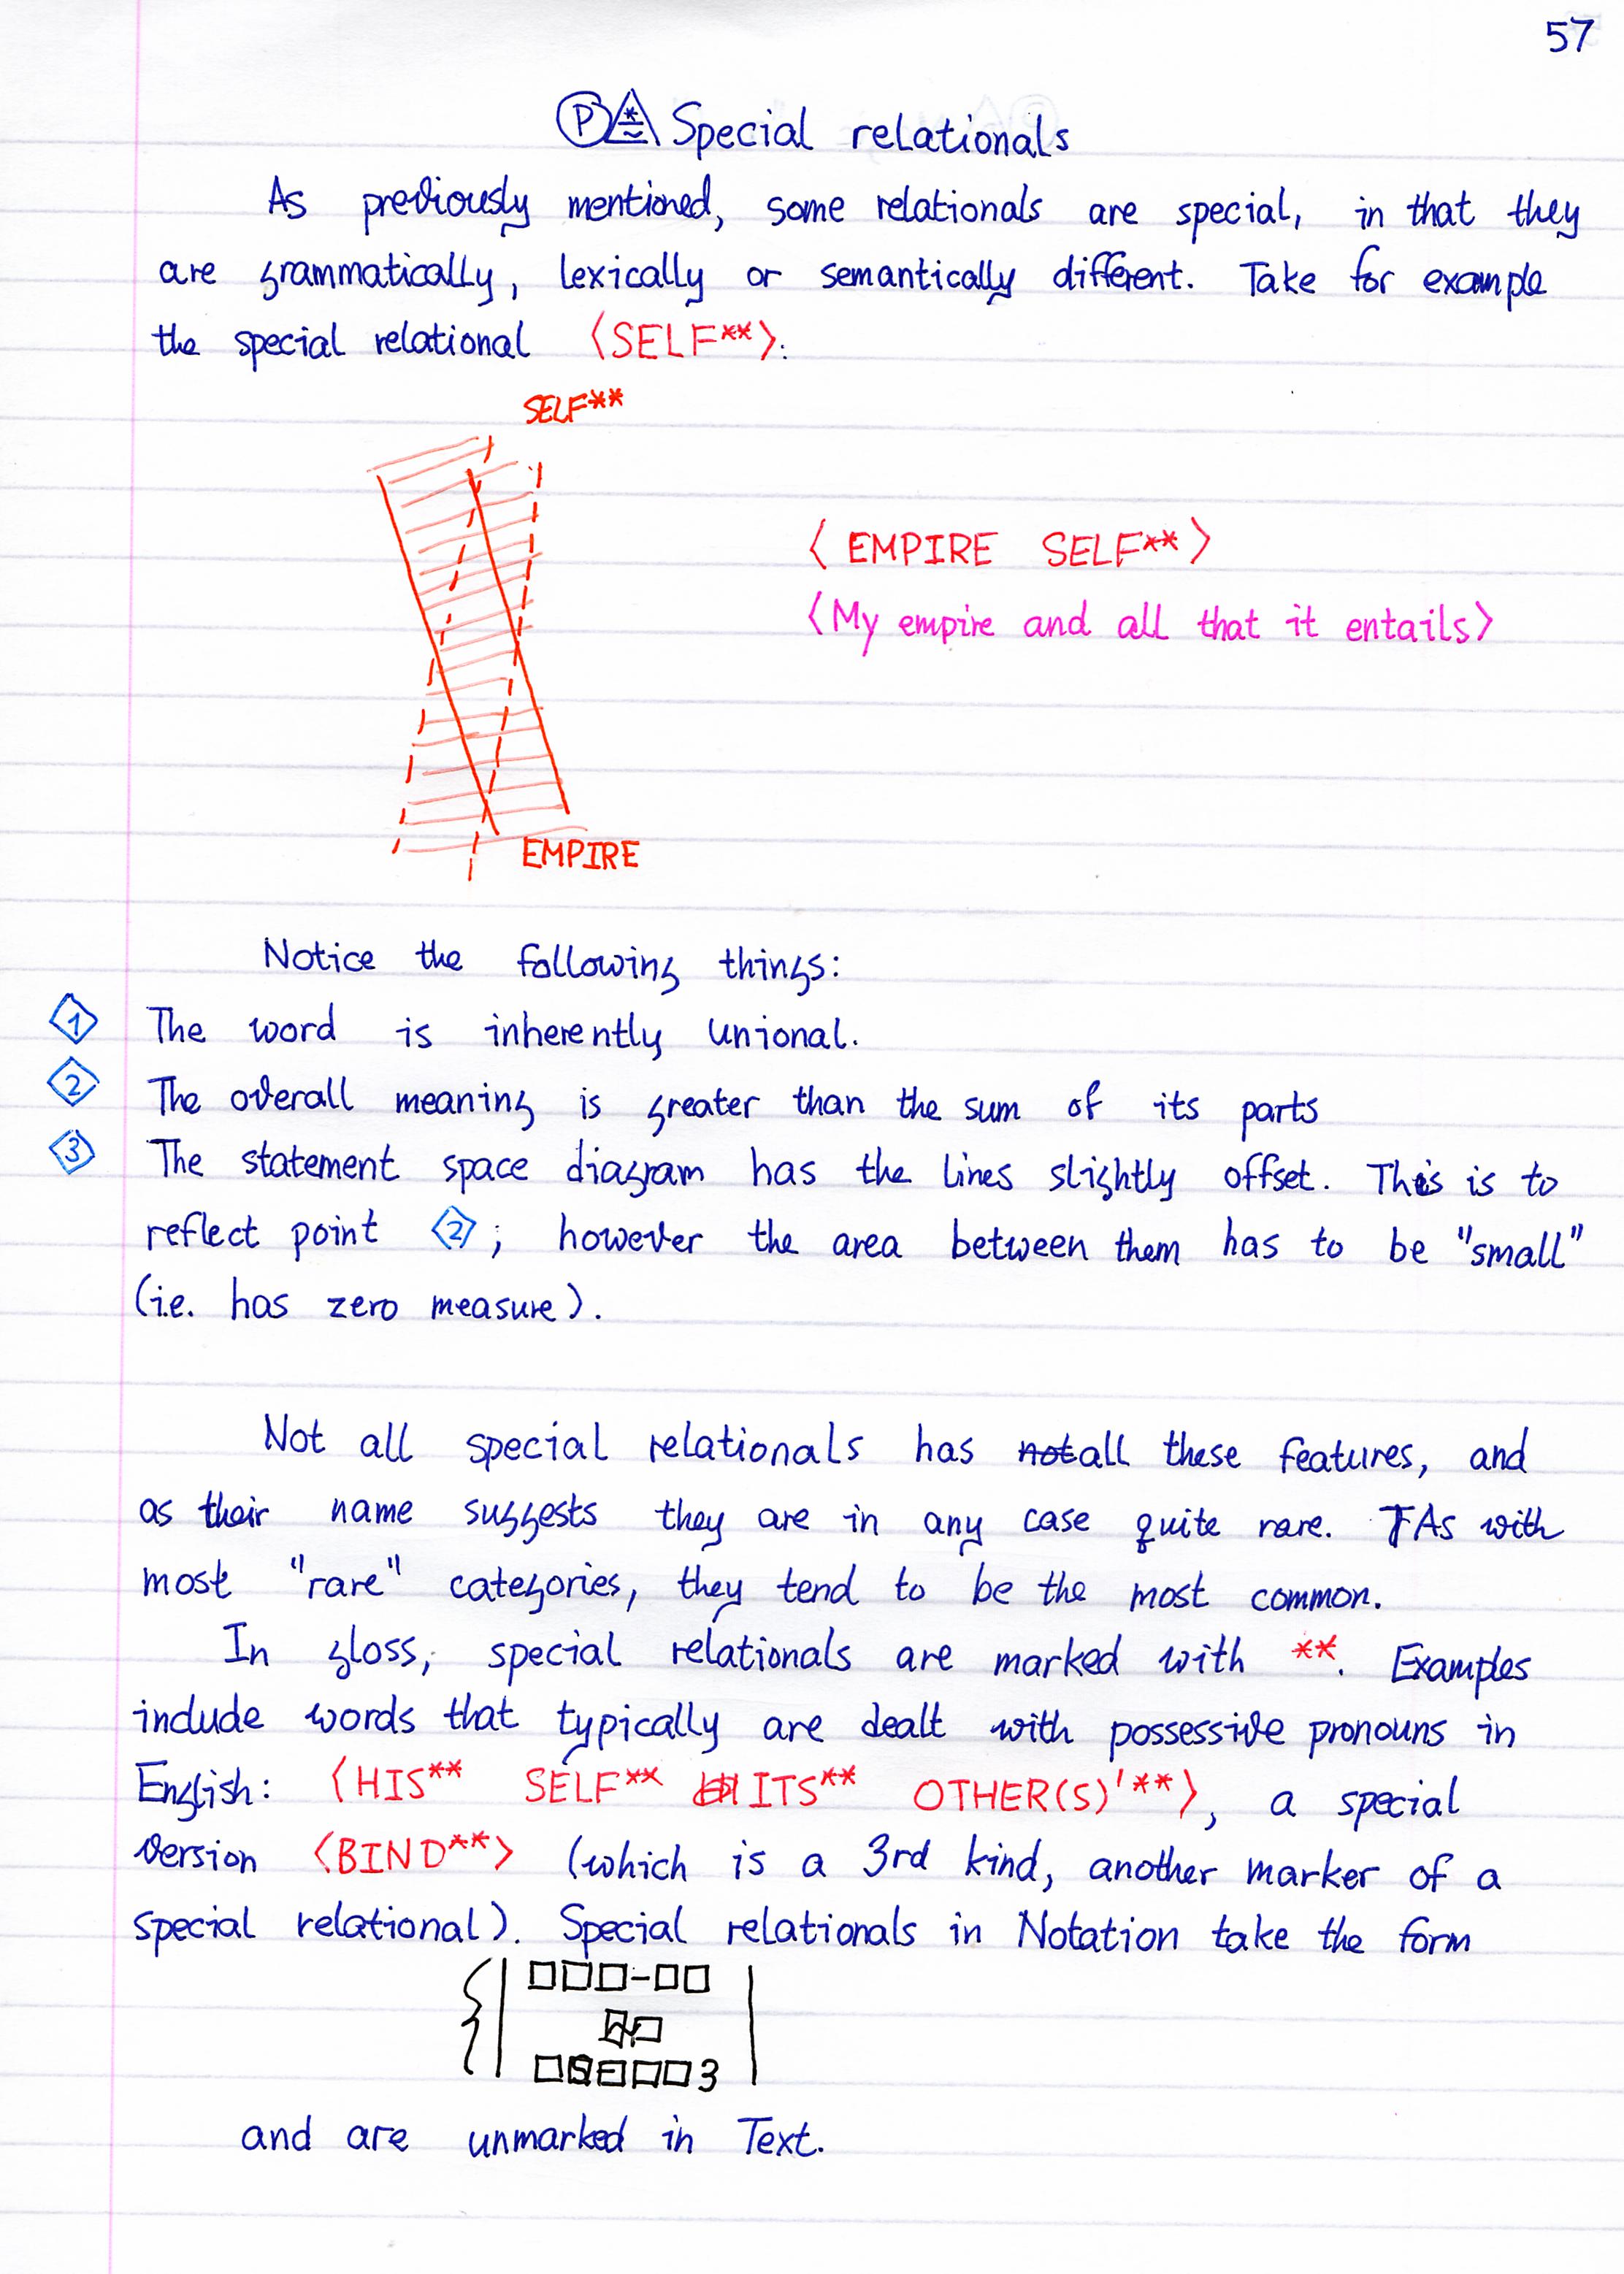 57
Special relationals
As previously mentioned, some relationals are special, in that they
are grammatically, lexically or semantically different. Take for example
the special relational ⟨SELF**⟩:
SELF**
⟨ EMPIRE SELF** ⟩
⟨My empire and all that it entails⟩
EMPIRE
Notice the following things:
1 The word is inherently unional.
2 The overall meaning is greater than the sum of its parts
3 The statement space diagram has the lines slightly offset. This is to
reflect point 2; however the area between them has to be "small"
(i.e. has zero measure).
Not all special relationals has not all these features, and
as their name suggests they are in any case quite rare. As with
most "rare" categories, they tend to be the most common.
In gloss, special relationals are marked with **. Examples
include words that typically are dealt with possessive pronouns in
English: ⟨HIS** SELF** ITS** OTHER(S)'**⟩, a special
version ⟨BIND**⟩ (which is a 3rd kind, another marker of a
special relational). Special relationals in Notation take the form
{| □□□-□□ |
□□
□□□□□3
and are unmarked in Text.